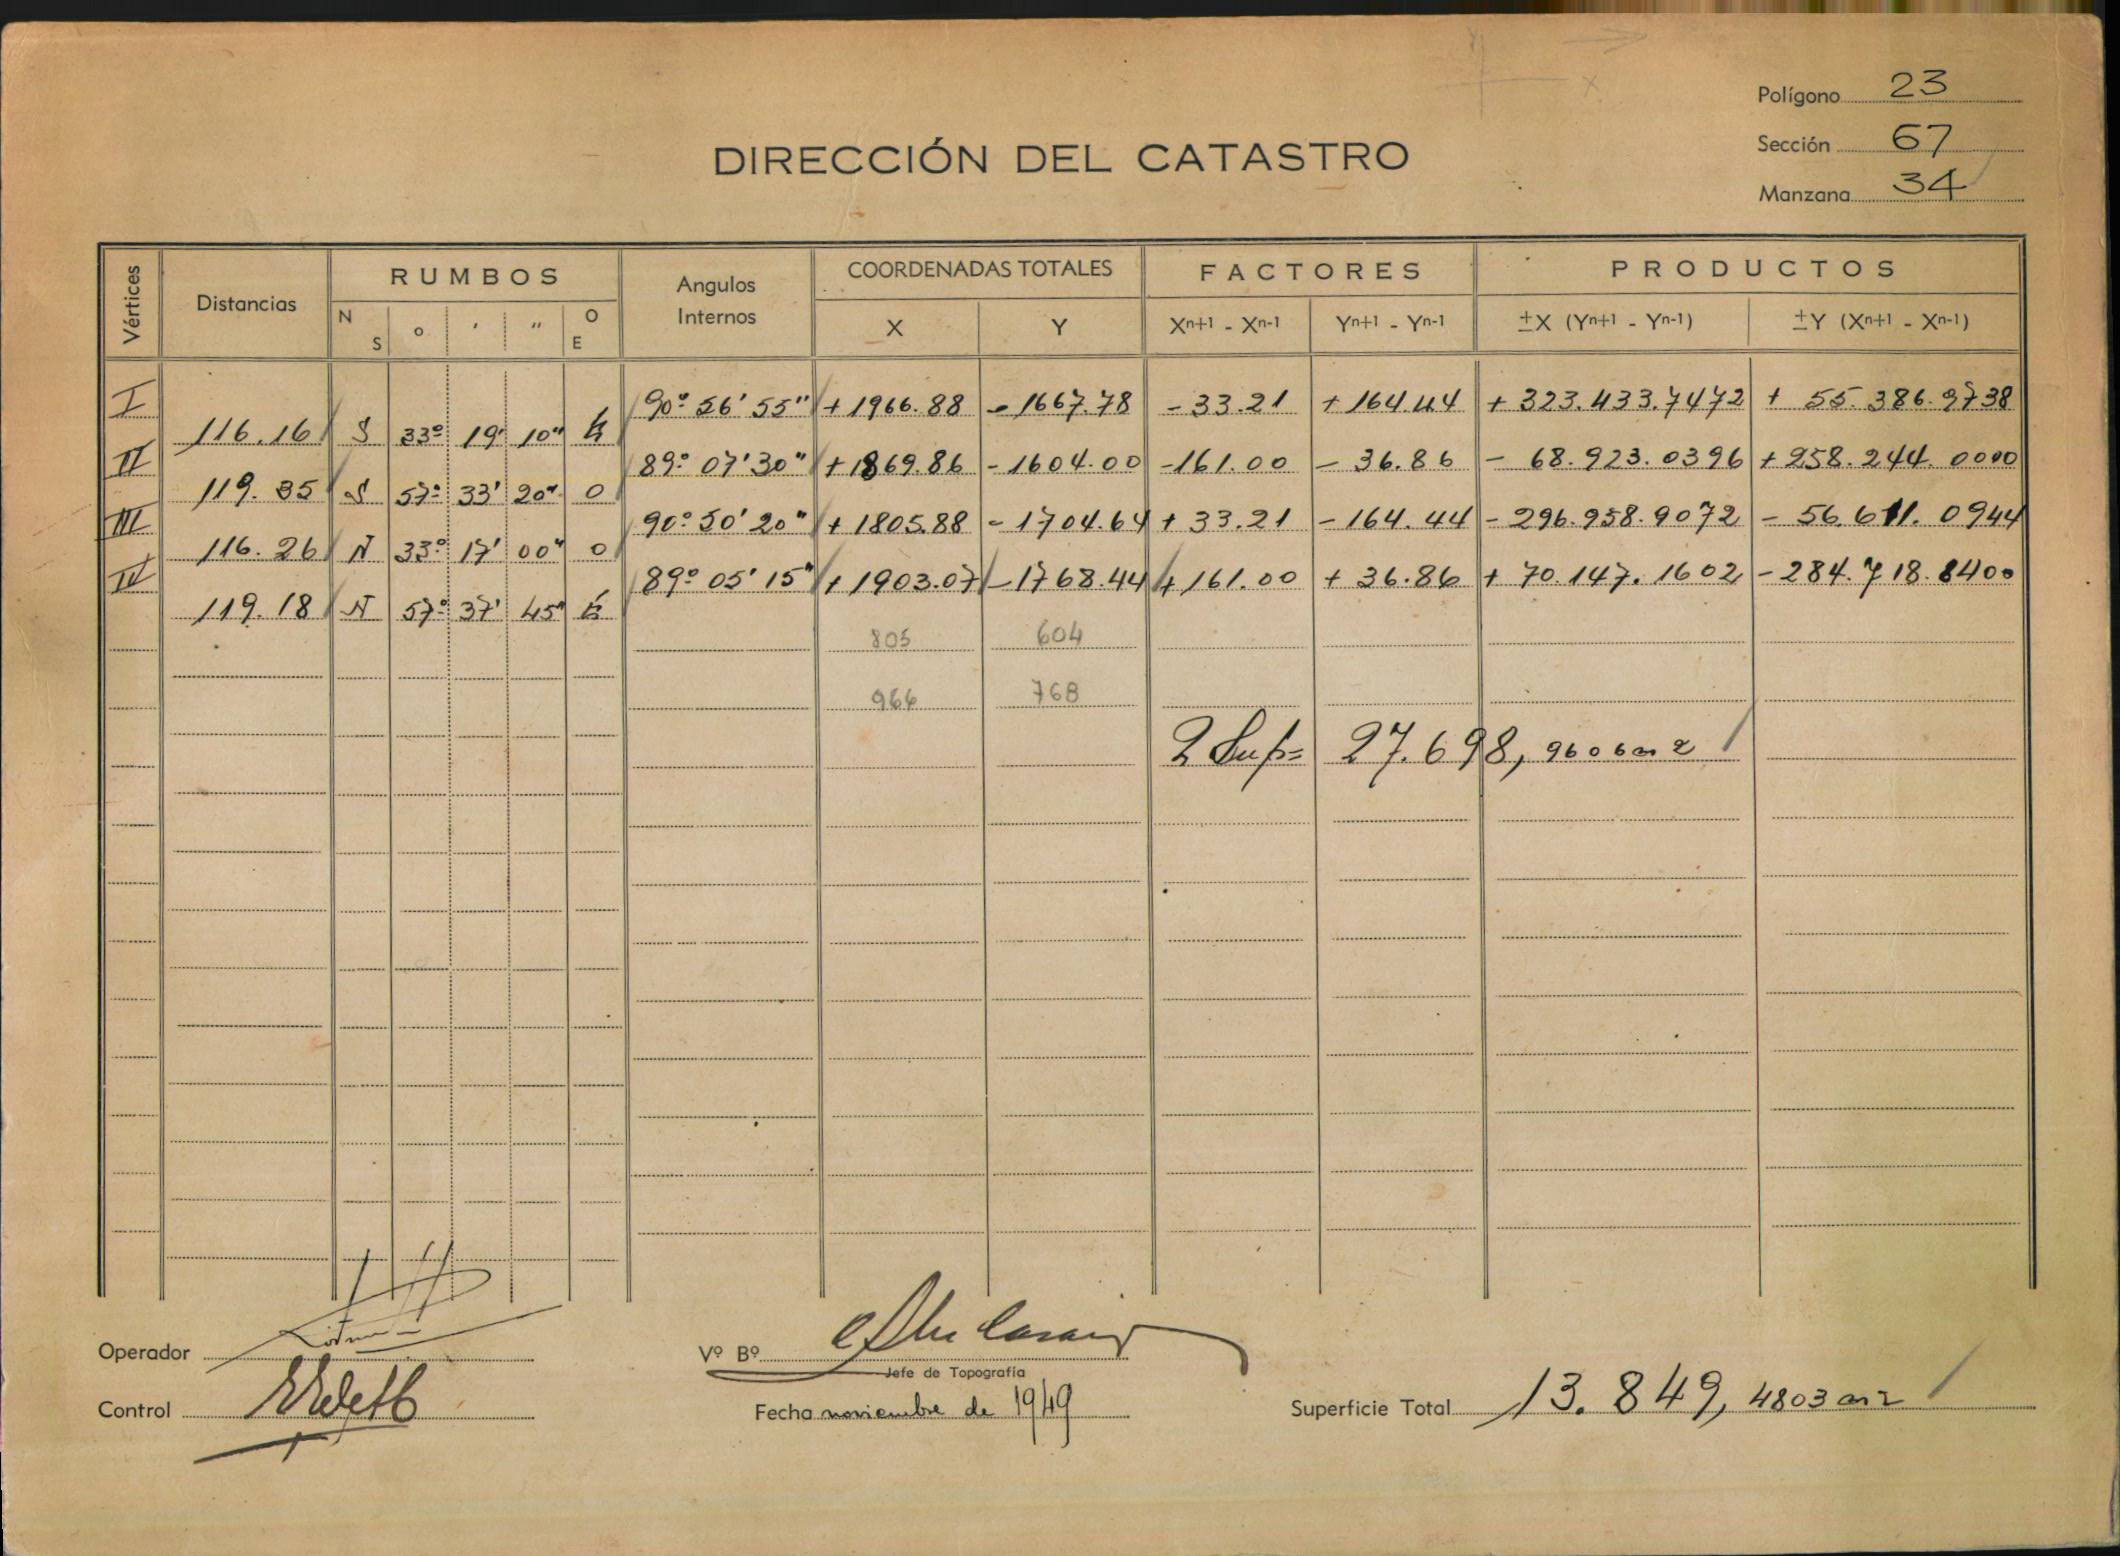 Polígono 23
Sección 67
Manzana 34
DIRECCIÓN DEL CATASTRO
Vértices Distancias RUMBOS Angulos Internos COORDENADAS TOTALES FACTORES PRODUCTOS
N S o ' " O E X Y Xn+1 - Xn-1 Yn+1 - Yn-1 ±X (Yn+1 - Yn-1) ±Y (Xn+1 - Xn-1)
I 90º 56' 55" + 1966.88 - 1667.78 - 33.21 + 164.44 + 323.433.7472 + 55.386.9738
116.16 S 33º 19' 10" E
II 89º 07' 30" + 1869.86 - 1604.00 - 161.00 - 36.86 - 68.923.0396 + 258.244.0000
119.35 S 57º 33' 20" O
III 90º 50' 20" + 1805.88 - 1704.64 + 33.21 - 164.44 - 296.958.9072 - 56.611.0944
116.26 N 33º 17' 00" O
IV 89º 05' 15" + 1903.07 - 1768.44 + 161.00 + 36.86 + 70.147.1602 - 284.718.8400
119.18 N 57º 37' 45" E
805 604
966 768
2 Sup= 27.698, 9606 m2
Operador
Vº Bº
Jefe de Topografía
Control
Fecha noviembre de 1949
Superficie Total 13.849, 4803 m2